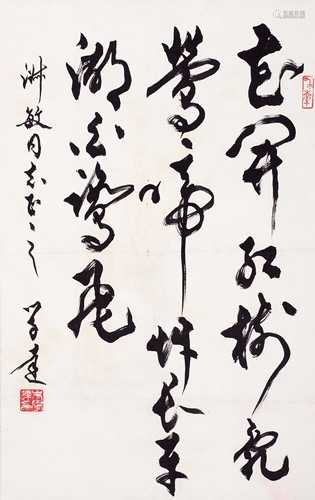 花開紅樹亂
鶯啼艸長平
湖白鷺飛
淑敏同志正之